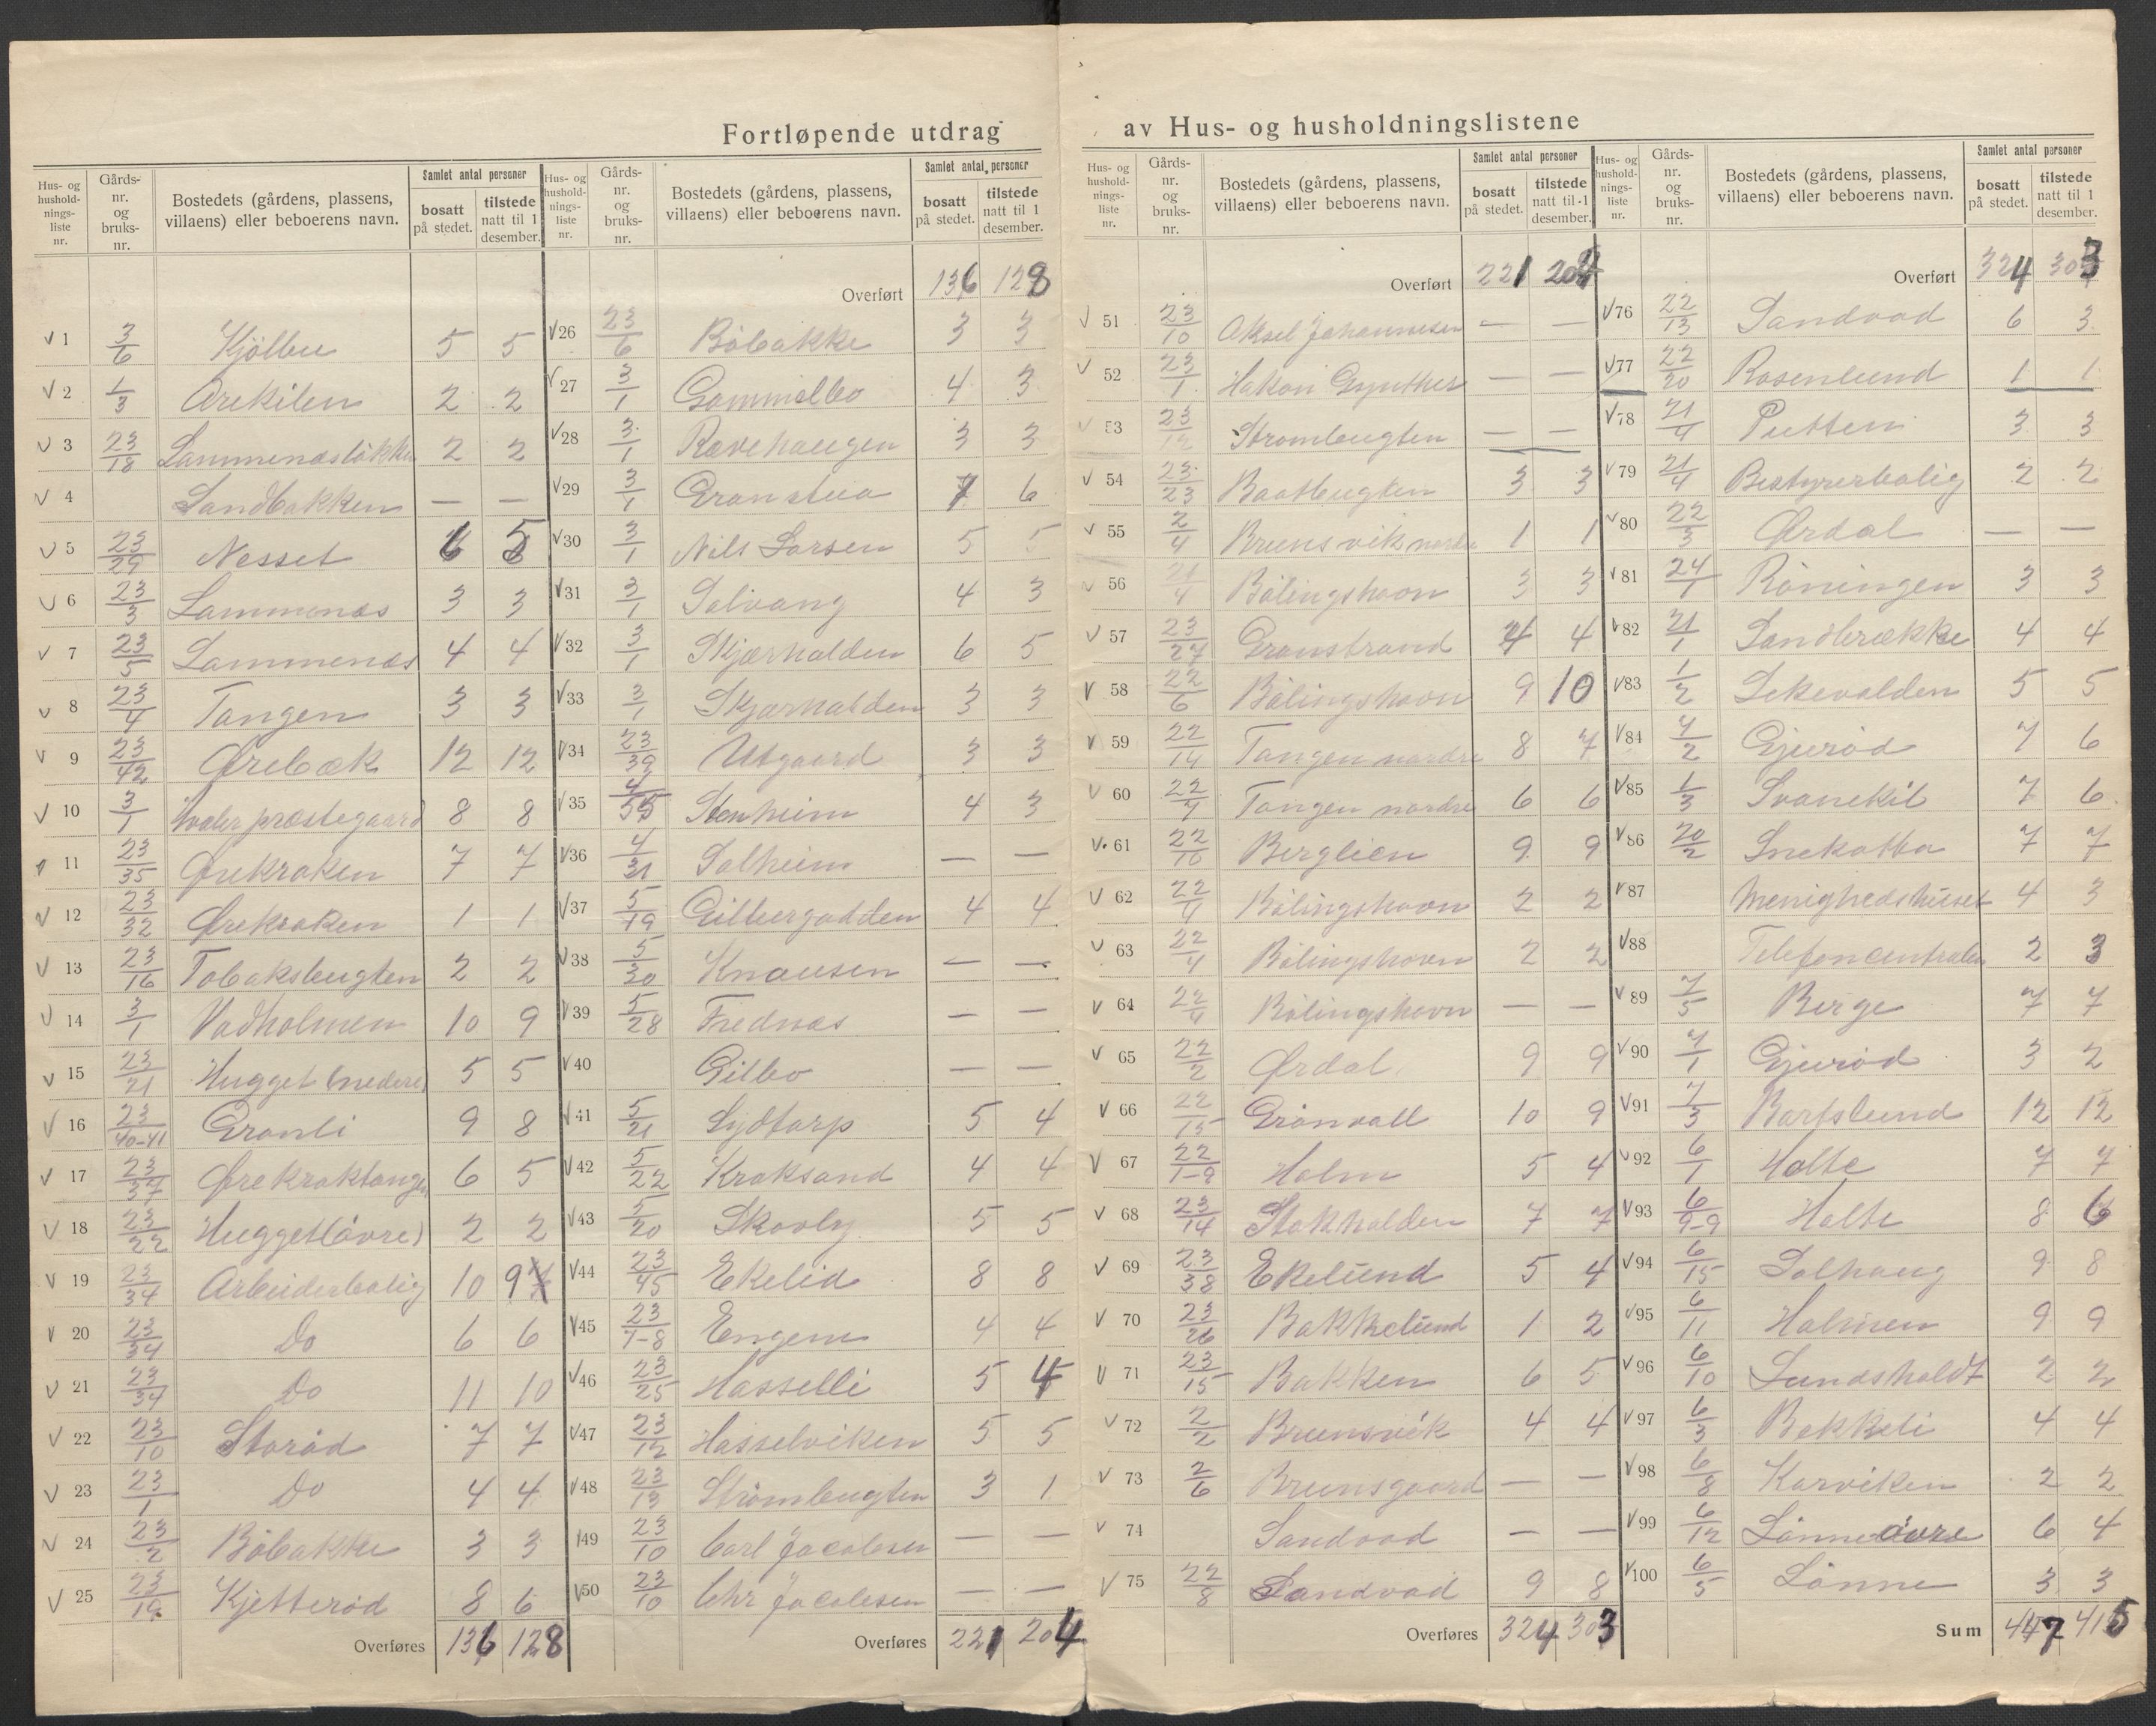 Fortløpende utdrag av Hus- og husholdningslistene
Hus- og husholdnings-liste nr. | Gårds-nr. og bruks-nr. | Bostedets (gårdens, plassens, villaens) eller beboerens navn. | Samlet antal personer bosatt på stedet. | tilstede natt til 1 desember.
1 3/6 Kjölbu 5 5
2 1/3 Arekilen 2 2
3 23/18 Lammenæsløkka 2 2
4 Sandbakken — —
5 23/29 Nesset 6 5
6 23/3 Lammenæs 3 3
7 23/5 Lammenæs 4 4
8 23/4 Tangen 3 3
9 23/42 Ørebæk 12 12
10 3/1 Hvaler præstegaard 8 8
11 23/35 Ørekroken 7 7
12 23/32 Ørekroken 1 1
13 23/16 Tobaksbugten 2 2
14 3/1 Vadholmen 10 9
15 23/21 Hugget (nedere) 5 5
16 23/40-41 Granli 9 8
17 23/37 Ørekroktangen 6 5
18 23/22 Hugget (øvre) 2 2
19 23/34 Arbeiderbolig 10 9
20 23/34 Do 6 6
21 23/34 Do 11 10
22 23/10 Storød 7 7
23 23/1 Do 4 4
24 23/2 Bøbakke 3 3
25 23/19 Kjetterød 8 6
Overføres 136 128
Overført 136 128
26 23/6 Bøbakke 3 3
27 3/1 Gammelbo 4 3
28 3/1 Rævehaugen 3 3
29 3/1 Granstua 7 6
30 3/1 Nils Larsen 5 5
31 3/1 Solvang 4 3
32 3/1 Skjærhalden 6 5
33 3/1 Skjærhalden 3 3
34 23/39 Utgaard 3 3
35 4/55 Stenheim 4 3
36 4/31 Solheim — —
37 5/19 Gilbergodden 4 4
38 5/30 Knausen — —
39 5/28 Frednæs — —
40 Gilbo — —
41 5/21 Sydtorp 5 4
42 5/22 Kroksand 4 4
43 5/20 Skovly 5 5
44 23/45 Ekelid 8 8
45 23/7-8 Engen 4 4
46 23/25 Hasselli 5 4
47 23/12 Hasselviken 5 5
48 23/13 Strømbugten 3 1
49 23/10 Carl Jacobsen — —
50 23/10 Chr Jacobsen — —
Overføres 221 204
Overført 221 204
51 23/10 Aksel Johannesen — —
52 23/1 Hakon Gynther — —
53 23/12 Strømbugten — —
54 23/23 Baatbugten 3 3
55 2/4 Brunsvik nordre 1 1
56 21/4 Bølingshavn 3 3
57 23/27 Granstrand 4 4
58 22/6 Bølingshavn 9 10
59 22/14 Tangen nordre 8 7
60 22/7 Tangen nordre 6 6
61 22/10 Berglien 9 9
62 22/4 Bølingshavn 2 2
63 22/4 Bølingshavn 2 2
64 22/4 Bølingshavn — —
65 22/2 Ørdal 9 9
66 22/15 Grönvoll 10 9
67 22/1-9 Holm 5 4
68 23/14 Stokholden 7 7
69 23/38 Ekelund 5 4
70 23/26 Bakkelund 1 2
71 23/15 Bakken 6 5
72 2/2 Brunsvik 4 4
73 2/6 Brunsgaard — —
74 Sandvad — —
75 22/8 Sandvad 9 8
Overføres 324 303
Overført 324 303
76 22/13 Sandvad 6 3
77 22/20 Rosenlund 1 1
78 21/4 Putten 3 3
79 21/4 Bestyrerbolig 2 2
80 22/3 Ørdal — —
81 24/1 Røningen 3 3
82 21/1 Sandbrække 4 4
83 1/2 Lekevolden 5 5
84 7/2 Gjerød 7 6
85 1/3 Svanekil 7 6
86 20/2 Snekotta 7 7
87 Menighedshuset 4 3
88 Telefoncentralen 2 3
89 7/5 Berge 7 7
90 7/1 Gjerød 3 2
91 7/3 Barfslund 12 12
92 6/1 Holte 7 7
93 6/9-9 Holte 8 6
94 6/15 Solhaug 9 8
95 6/11 Holmen 9 9
96 6/10 Lundsholdt 2 2
97 6/3 Bekkeli 4 4
98 6/8 Korviken 2 2
99 6/12 Lönne øvre 6 4
100 6/5 Lönne 3 3
Sum 447 415